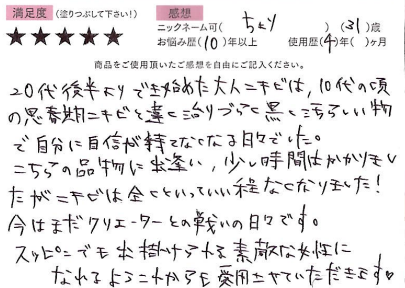 満足度 (塗りつぶして下さい!) 感想
★★★★★ ニックネーム可( ちより ) (31)歳
お悩み歴(10)年以上 使用歴(4)年( )ヶ月
商品をご使用頂いたご感想を自由にご記入ください。
20代後半よりでき始めた大人ニキビは、10代の頃
の思春期ニキビと違く治りづらく黒く汚らしい物
で自分に自信が持てなくなる日々でした。
こちらの品物に出逢い、少し時間はかかりまし
たがニキビは全くといっていい程なくなりました!
今はまだクリエーターとの戦いの日々です。
スッピンでもお出掛けられる素敵な女性に
なれるようこれからも愛用させていただきます♥